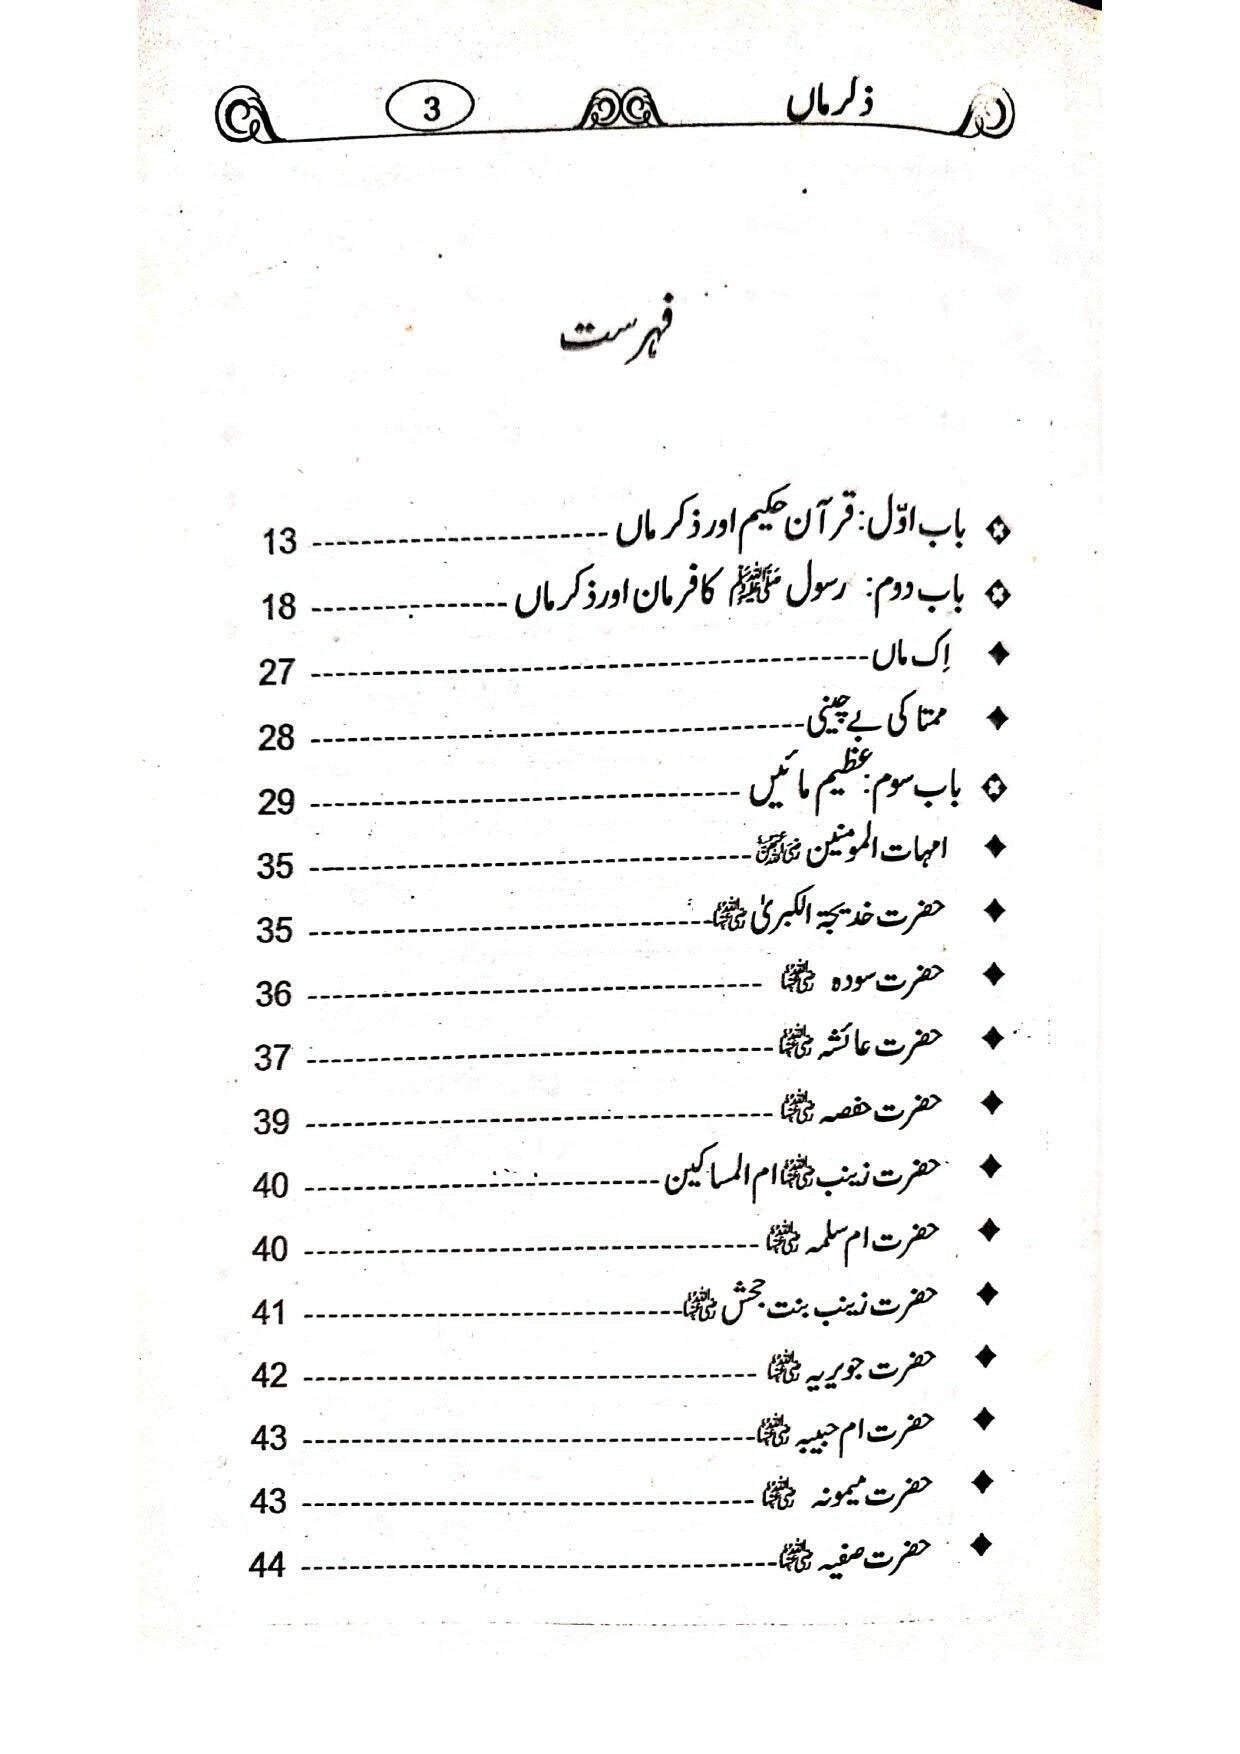 ذکر ماں 3
فہرست
باب اوّل: قرآن حکیم اور ذکر ماں ------------------------ 13
باب دوم: رسول ﷺ کا فرمان اور ذکر ماں ---------------- 18
اِک ماں ---------------------------------------------- 27
ممتا کی بے چینی ---------------------------------------- 28
باب سوم: عظیم مائیں ----------------------------------- 29
امہات المومنین رضی اللہ عنہن ------------------------------------ 35
حضرت خدیجۃ الکبریٰ رضی اللہ عنہا --------------------------------- 35
حضرت سودہ رضی اللہ عنہا ------------------------------------- 36
حضرت عائشہ رضی اللہ عنہا -------------------------------------- 37
حضرت حفصہ رضی اللہ عنہا -------------------------------------- 39
حضرت زینب رضی اللہ عنہا ام المساکین ----------------------------- 40
حضرت ام سلمہ رضی اللہ عنہا ------------------------------------- 40
حضرت زینب بنت جحش رضی اللہ عنہا ------------------------------- 41
حضرت جویریہ رضی اللہ عنہا ------------------------------------- 42
حضرت ام حبیبہ رضی اللہ عنہا ------------------------------------- 43
حضرت میمونہ رضی اللہ عنہا ------------------------------------- 43
حضرت صفیہ رضی اللہ عنہا --------------------------------------- 44